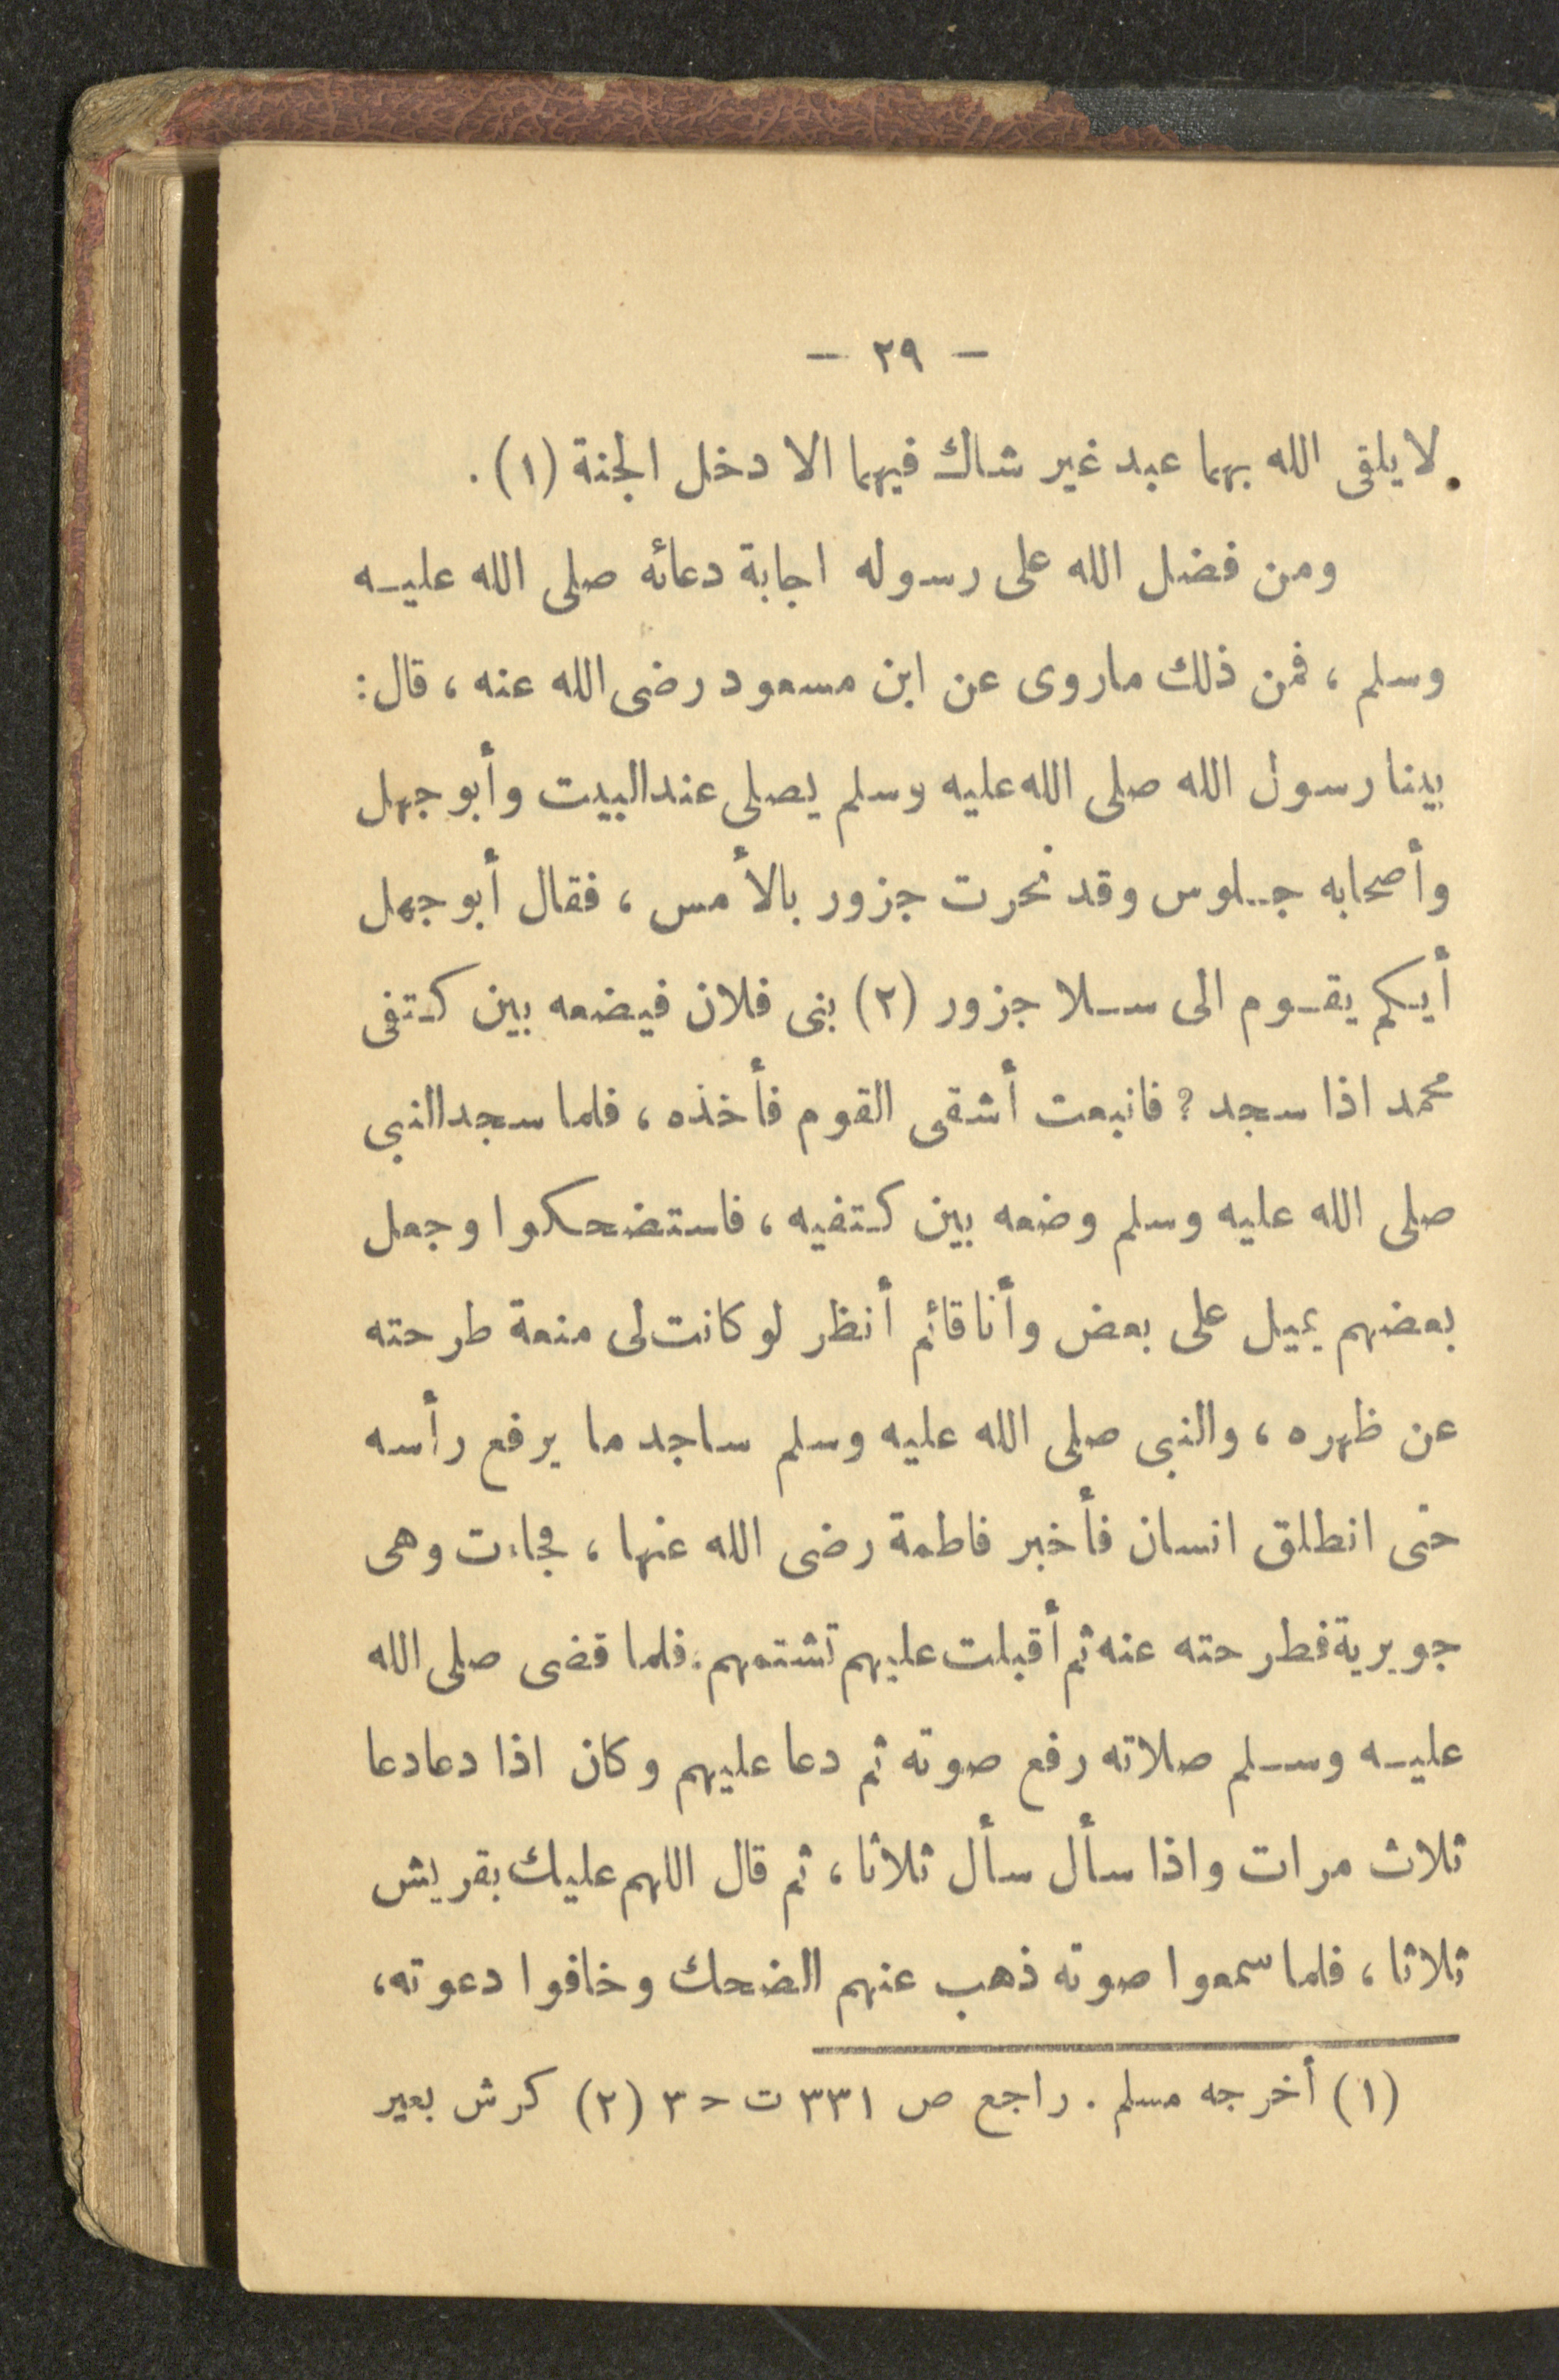 — ٢٩ —
لا يلقى الله بهما عبد غير شاك فيهما الا دخل الجنة (١) .
ومن فضل الله على رسوله اجابة دعائه صلى الله عليه
وسلم ، فمن ذلك ماروى عن ابن مسعود رضى الله عنه ، قال :
بينا رسول الله صلى الله عليه وسلم يصلى عند البيت وأبو جهل
وأصحابه جلوس وقد نحرت جزور بالأمس ، فقال أبو جهل
أيكم يقوم الى سلا جزور (٢) بنى فلان فيضعه بين كتفى
محمد اذا سجد ؟ فانبعث أشقى القوم فأخذه ، فلما سجد النبى
صلى الله عليه وسلم وضعه بين كتفيه ، فاستضحكوا وجعل
بعضهم يميل على بعض وأنا قائم أنظر لو كانت لى منعة طرحته
عن ظهره ، والنبى صلى الله عليه وسلم ساجد ما يرفع رأسه
حتى انطلق انسان فأخبر فاطمة رضى الله عنها ، فجاءت وهى
جويرية فطرحته عنه ثم أقبلت عليهم تشتمهم . فلما قضى صلى الله
عليه وسلم صلاته رفع صوته ثم دعا عليهم وكان اذا دعا دعا
ثلاث مرات واذا سأل سأل ثلاثا ، ثم قال اللهم عليك بقريش
ثلاثا ، فلما سمعوا صوته ذهب عنهم الضحك وخافوا دعوته ،
(١) أخرجه مسلم . راجع ص ٣٣١ ت ح ٣ (٢) كرش بعير